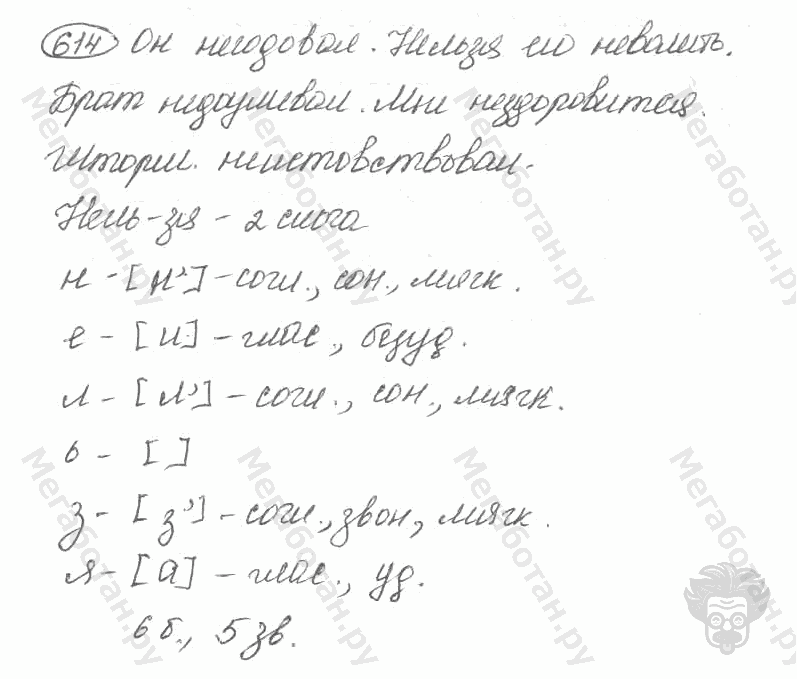 614 Он негодовал. Нельзя его неволить.
Брат недоумевал. Мне нездоровится.
Шторм неистовствовал.
Нель-зя - 2 слога
н - [н'] - согл., сон., мягк.
е - [и] - глас., безуд.
л - [л'] - согл., сон., мягк.
ь - [ ]
з - [з'] - согл., звон., мягк.
я - [а] - глас., уд.
6 б., 5 зв.
Мегаботан.ру